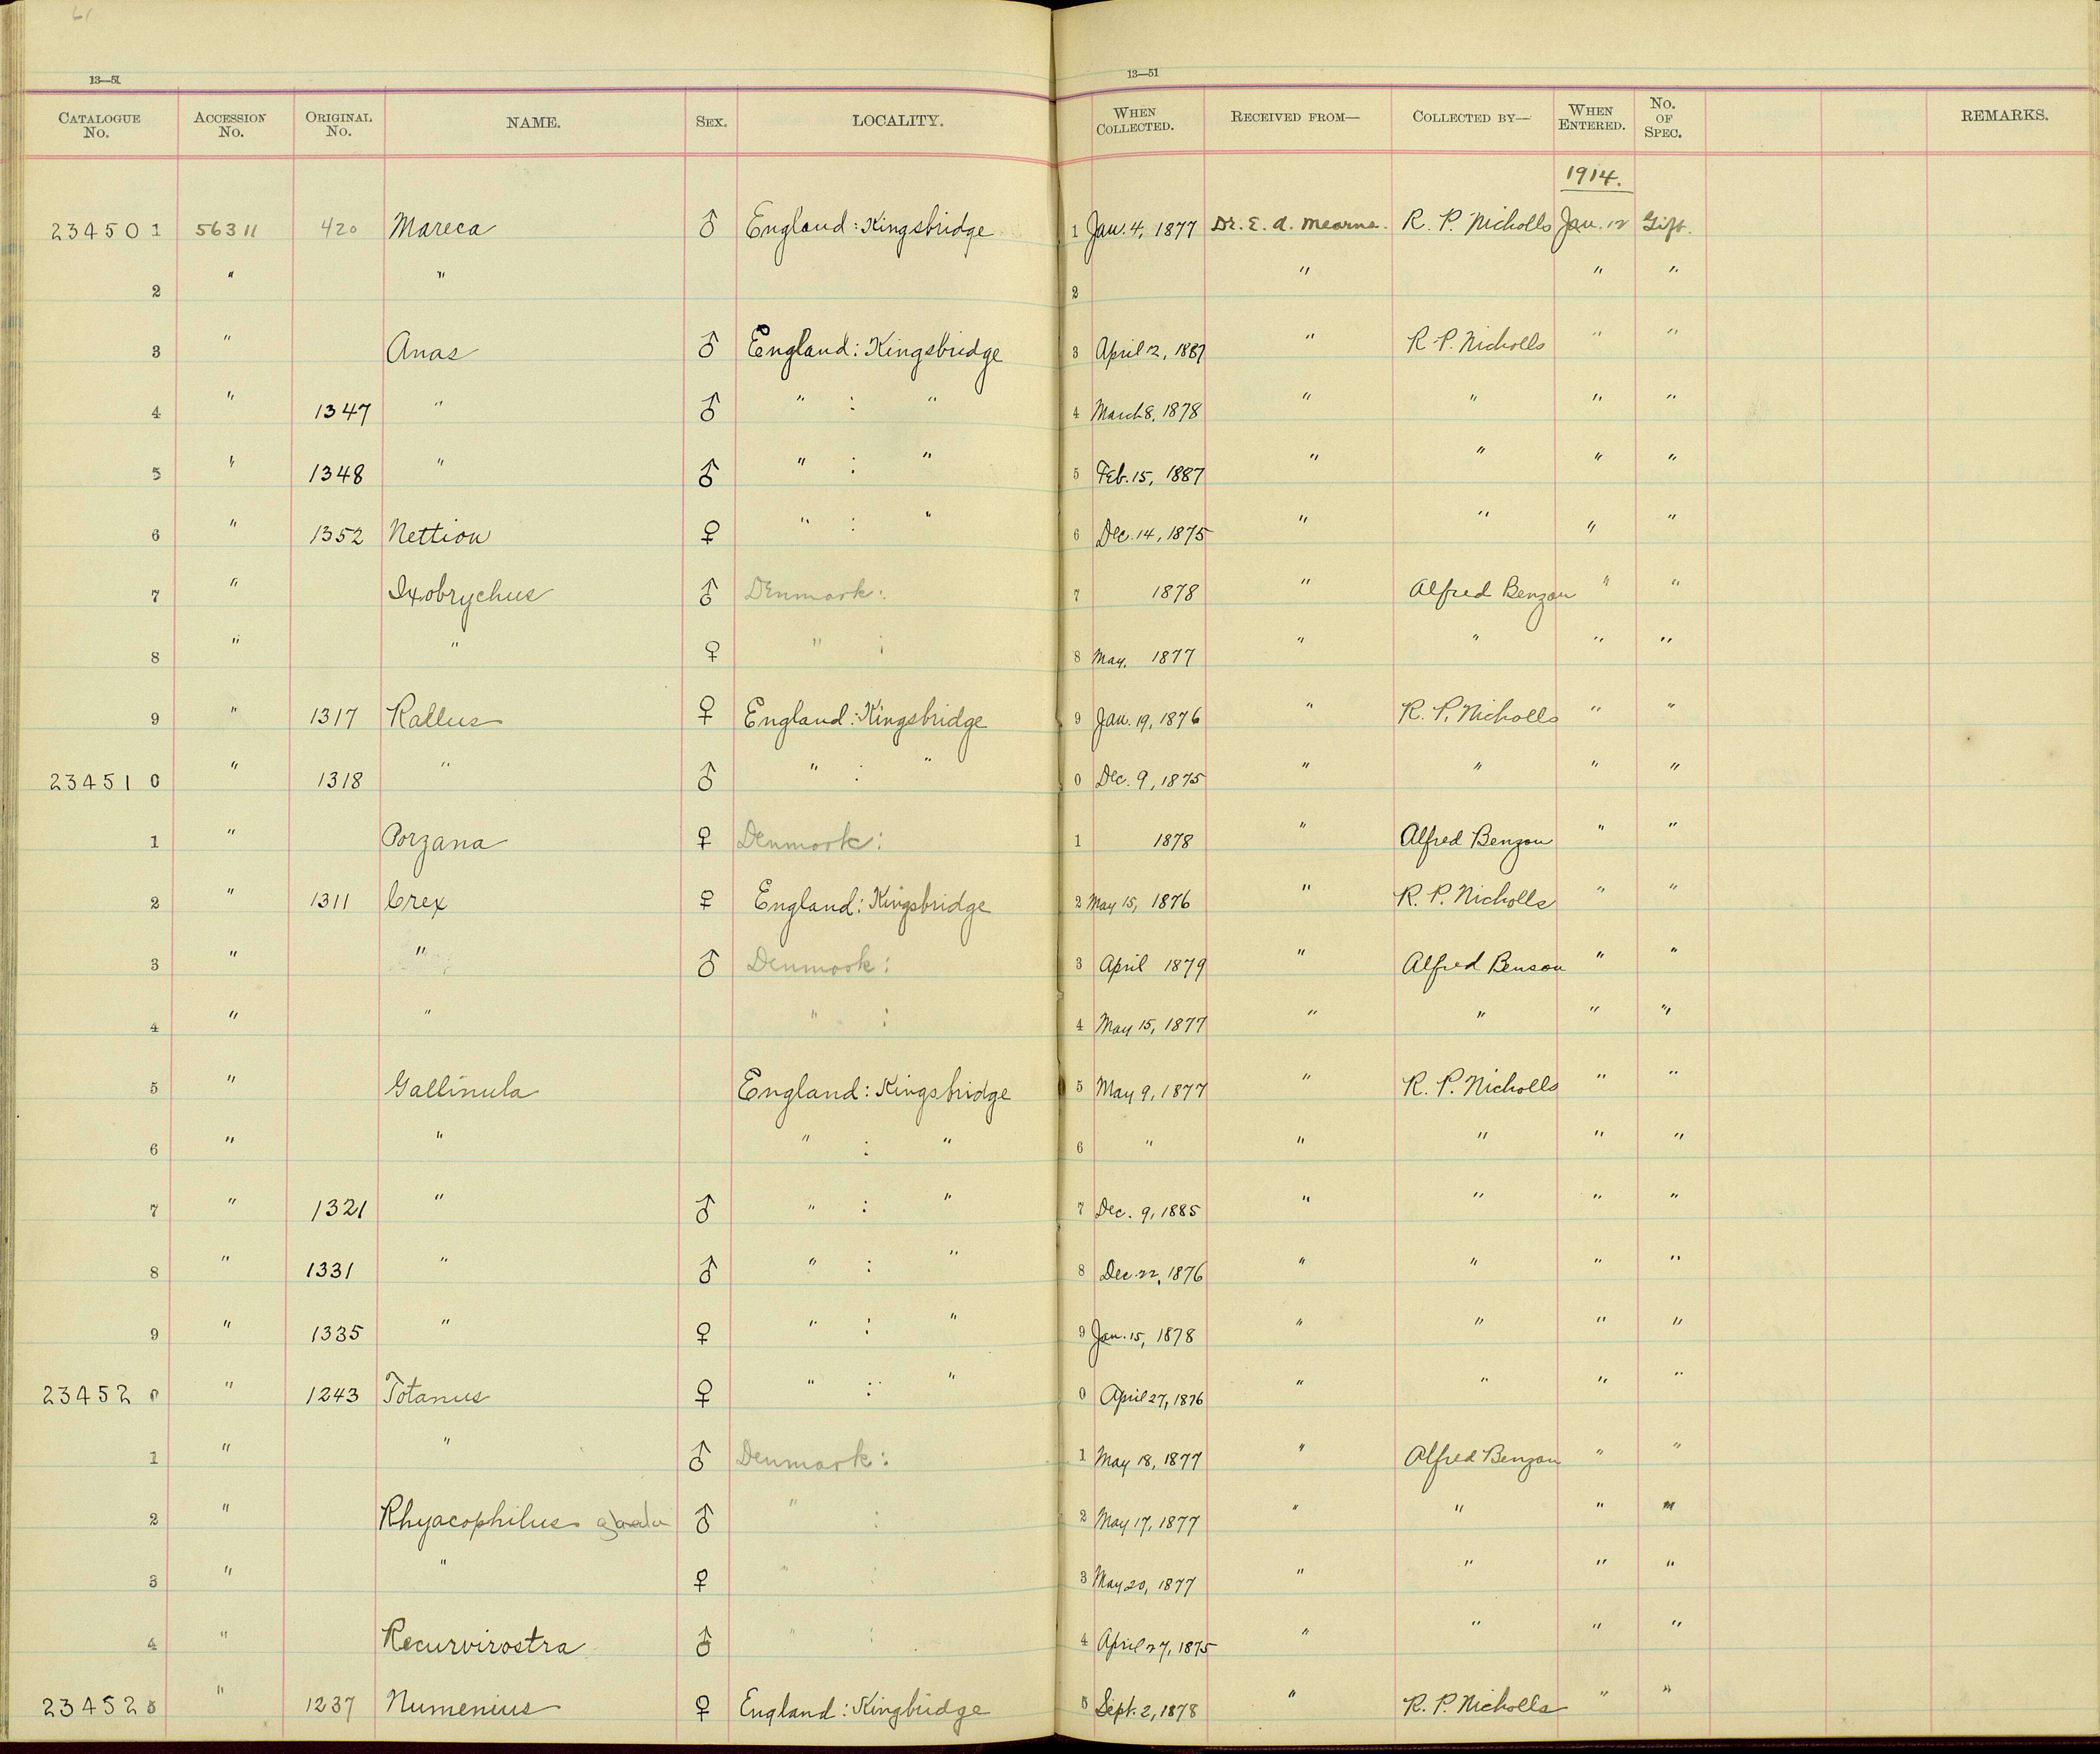 61
13—51 13—51
CATALOGUE No. ACCESSION No. ORIGINAL No. NAME. SEX. LOCALITY. WHEN COLLECTED. RECEIVED FROM— COLLECTED BY— WHEN ENTERED. No. OF SPEC. REMARKS.
1914.
234501 56311 420 Mareca ♂ England: Kingsbridge 1 Jan. 4, 1877 Dr. E. A. Mearns. R. P. Nicholls Jan. 12 Gift.
2 " " 2 " " "
3 " Anas ♂ England: Kingsbridge 3 April 12, 1887 " R. P. Nicholls " "
4 " 1347 " ♂ " : " 4 March 8, 1878 " " " "
5 " 1348 " ♂ " : " 5 Feb. 15, 1887 " " " "
6 " 1352 Nettion ♀ " : " 6 Dec. 14, 1875 " " " "
7 " Ixobrychus ♂ Denmark: 7 1878 " Alfred Benzon " "
8 " " ♀ " : 8 May. 1877 " " " "
9 " 1317 Rallus ♀ England: Kingsbridge 9 Jan. 19, 1876 " R. P. Nicholls " "
234510 " 1318 " ♂ " : " 0 Dec. 9, 1875 " " " "
1 " Porzana ♀ Denmark: 1 1878 " Alfred Benzon " "
2 " 1311 Crex ♀ England: Kingsbridge 2 May 15, 1876 " R. P. Nicholls " "
3 " " ♂ Denmark: 3 April 1879 " Alfred Benson " "
4 " " " : 4 May 15, 1877 " " " "
5 " Gallinula England: Kingsbridge 5 May 9, 1877 " R. P. Nicholls " "
6 " " " : " 6 " " " " "
7 " 1321 " ♂ " : " 7 Dec. 9, 1885 " " " "
8 " 1331 " ♂ " : " 8 Dec. 22, 1876 " " " "
9 " 1335 " ♀ " : " 9 Jan. 15, 1878 " " " "
234520 " 1243 Totanus ♀ " : " 0 April 27, 1876 " " " "
1 " " ♂ Denmark: 1 May 18, 1877 " Alfred Benzon " "
2 " Rhyacophilus ♂ " : 2 May 17, 1877 " " " "
3 " " ♀ " : 3 May 20, 1877 " " " "
4 " Recurvirostra ♂ " : 4 April 27, 1875 " " " "
234525 " 1237 Numenius ♀ England: Kingbridge 5 Sept. 2, 1878 " R. P. Nicholls " "